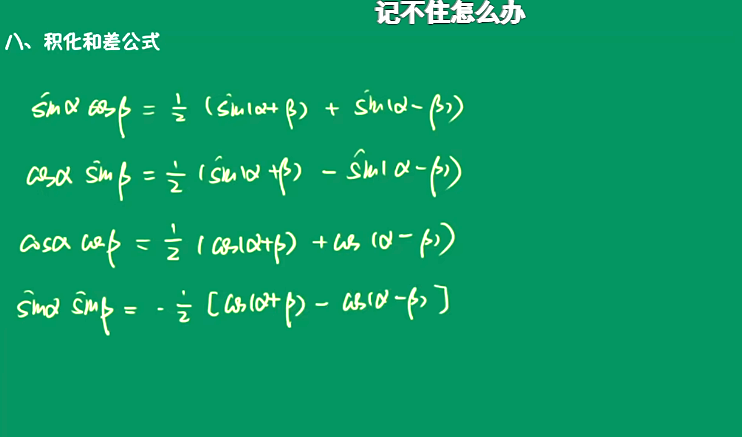 记不住怎么办
八、积化和差公式
sinα cosβ = 1/2 (sin(α+β) + sin(α-β))
cosα sinβ = 1/2 (sin(α+β) - sin(α-β))
cosα cosβ = 1/2 (cos(α+β) + cos(α-β))
sinα sinβ = -1/2 [cos(α+β) - cos(α-β)]